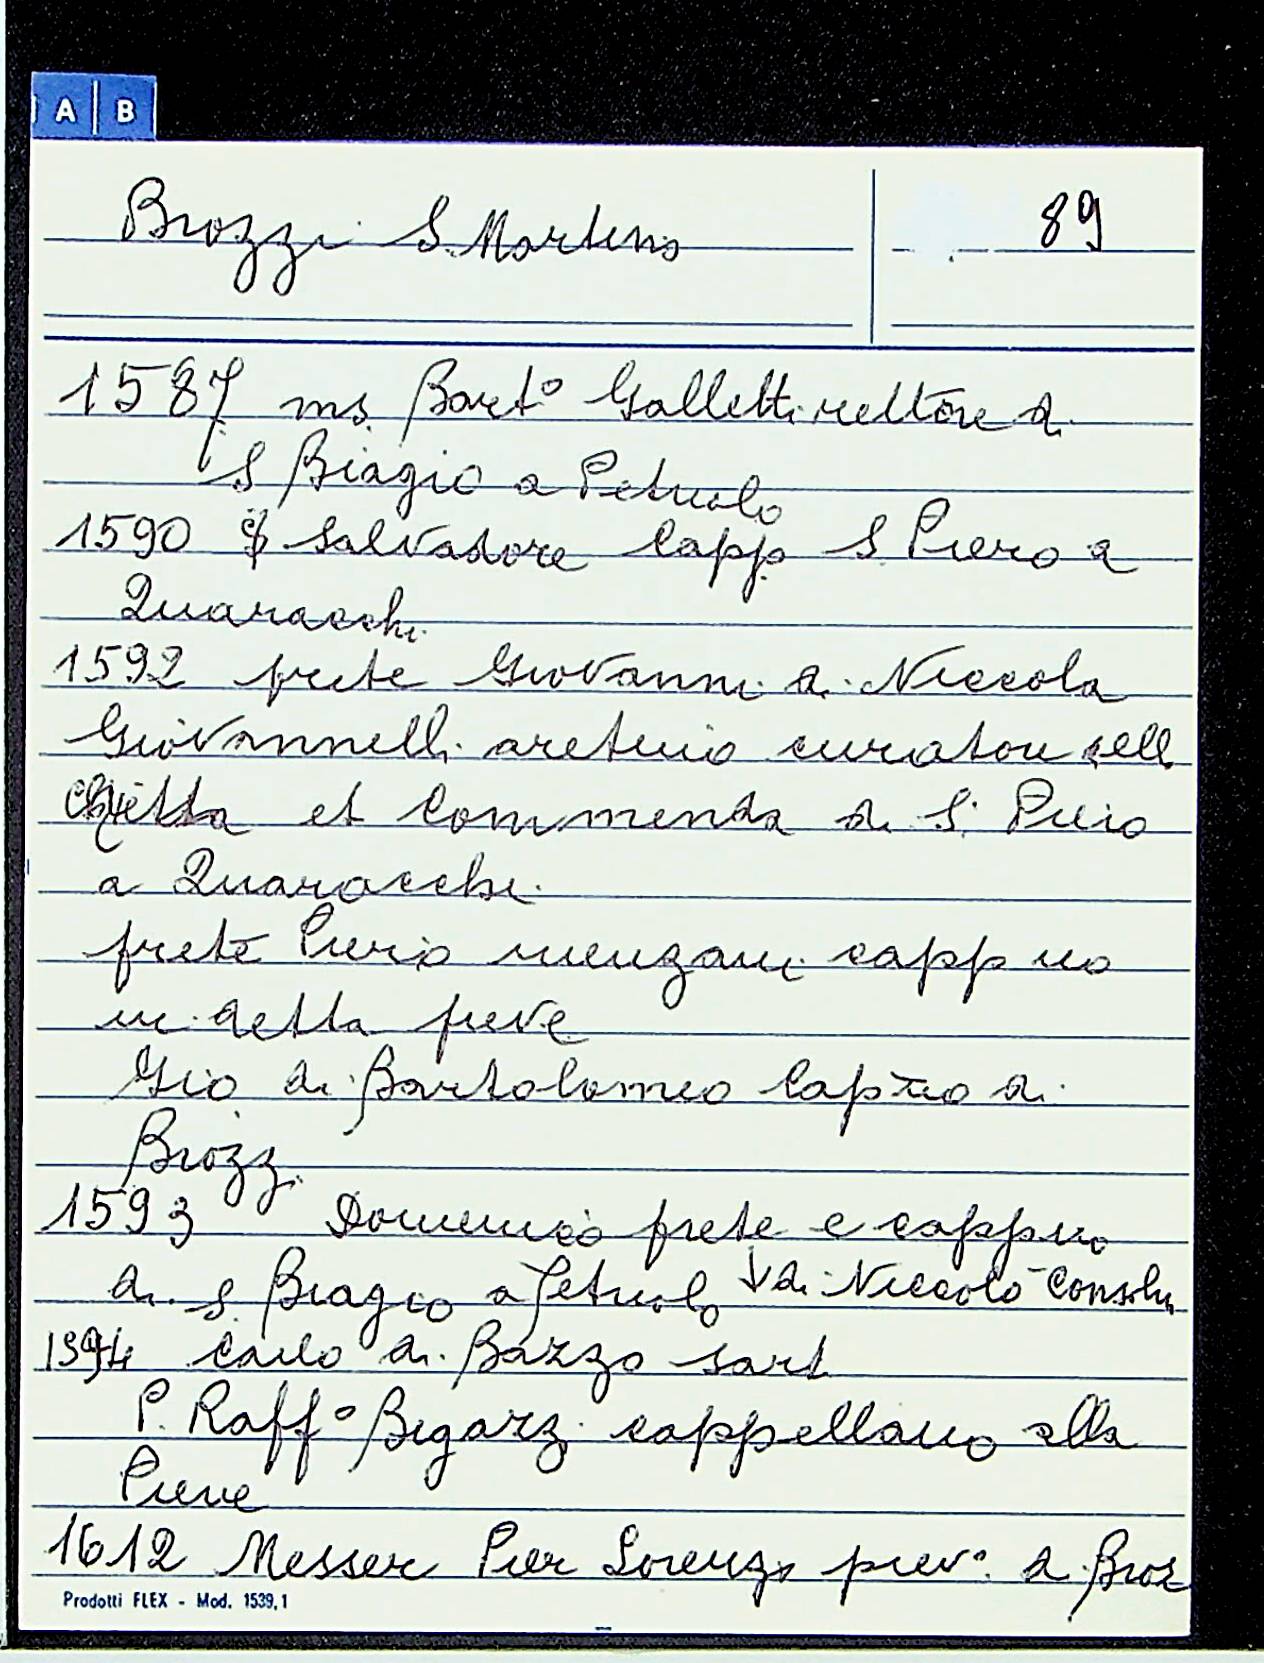 A B
Brozzi S. Martino
89
1587 ms. Bart° Galletti rettore di
S Biagio a Petriolo
1590 Salvadore Capp S Piero a
Quaracchi
1592 prete Giovanni di Niccola
Giovannelli aretino curatore dell
et Commenda di S. Piero
a Quaracchi.
prete Piero capp no
in detta pieve
Gio di Bartolomeo Cap no di
Brozzi
1593 Domenico prete e capp no
di S. Biagio a Petriolo di Niccolò
1594 Carlo di Bazzo sart
P. Raff° Bigazzi cappellano alla
Pieve
1612 Messer Pier Lorenzo piev° di Broz
Prodotti FLEX - Mod. 1539,1